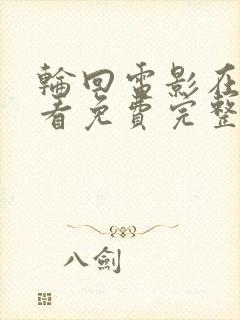 輪回雷影在
看免費完整
八劍